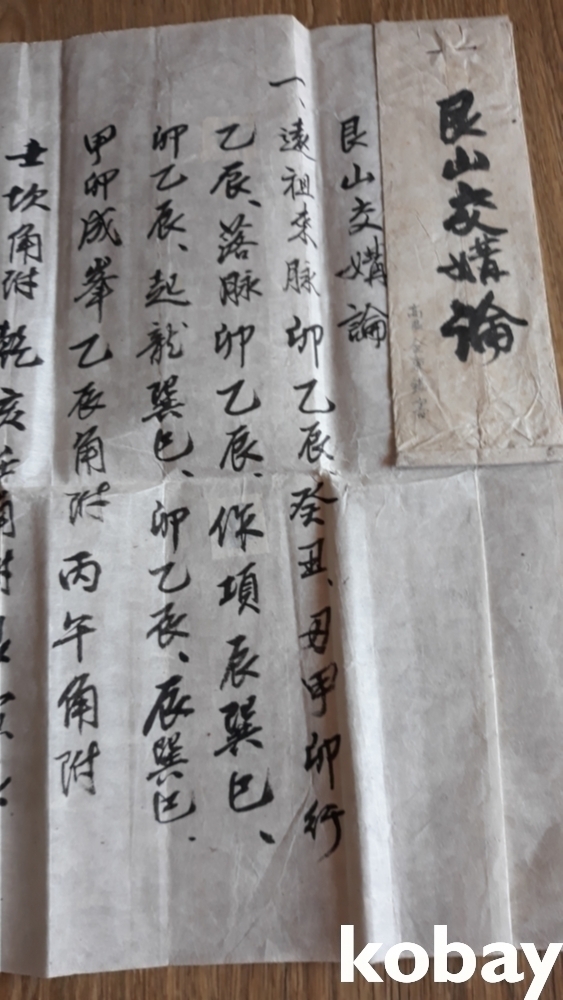 艮山交媾論
艮山交媾論
一、遠祖來脈卯乙辰、癸丑、丑甲卯行
乙辰、落脈卯乙辰、作項辰巽巳、
卯乙辰、起龍巽巳、卯乙辰、辰巽巳.
甲卯成峯乙辰角附丙午角附
壬坎角附乾亥壬角附
kobay